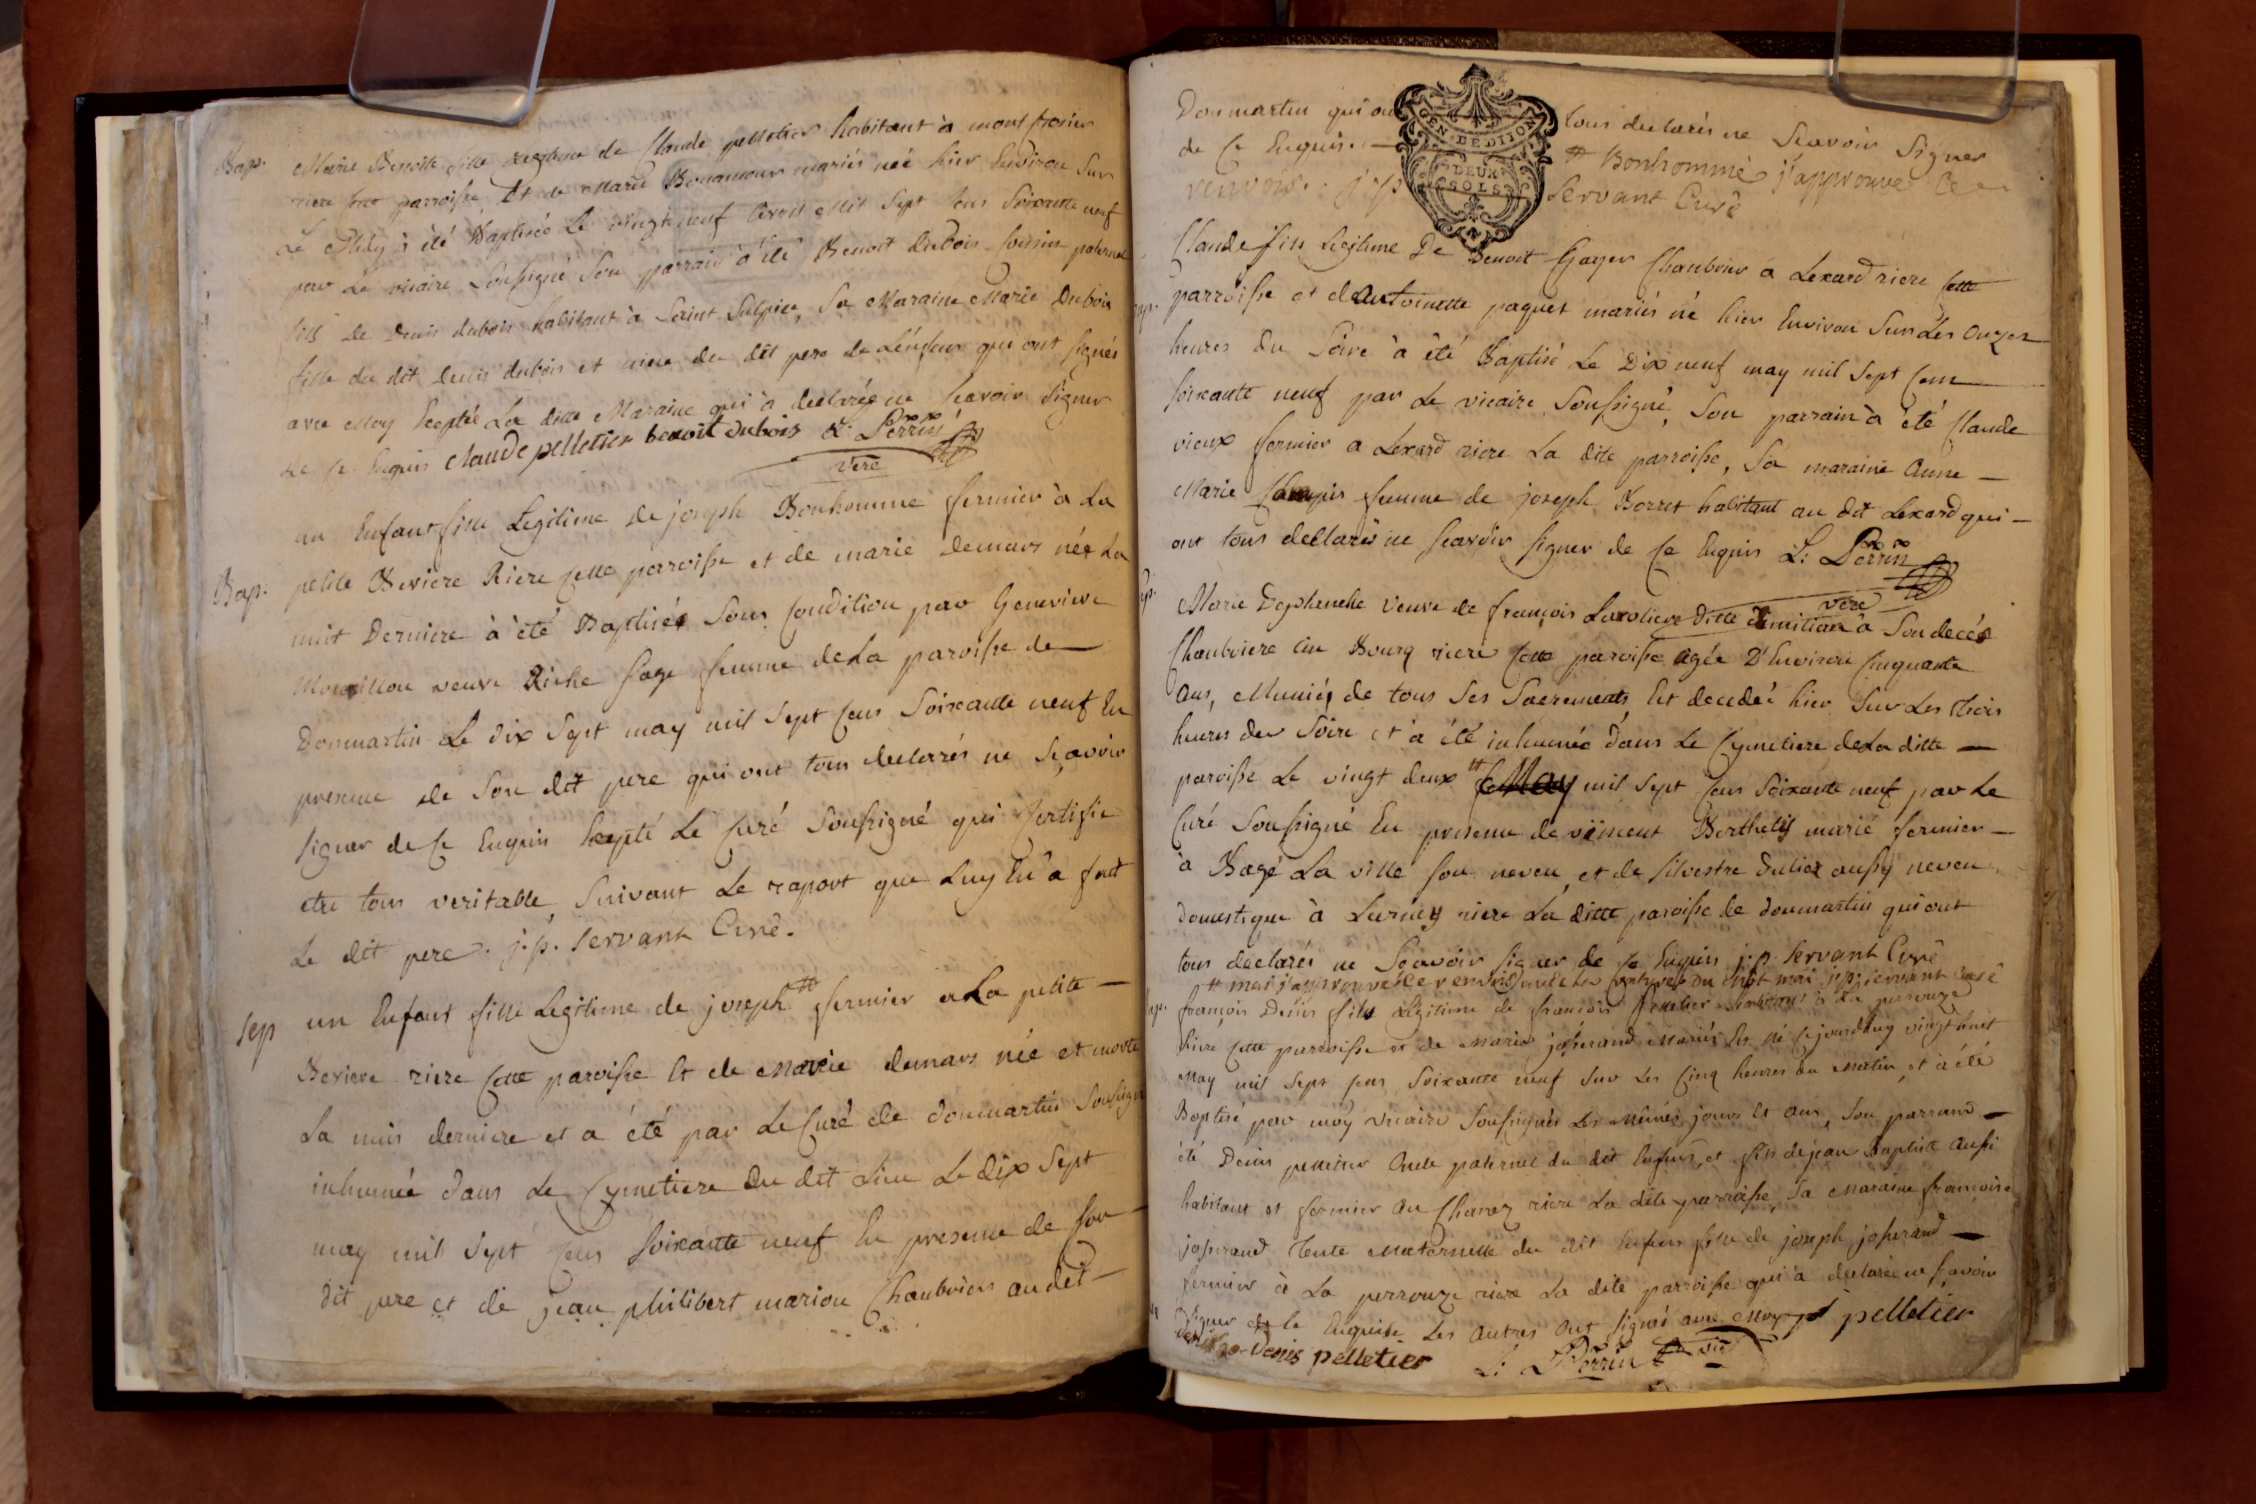 Bap.
Marie Benoite fille Legitime de Claude pelletier habitant à mont
riere cette parroisse Et de Marie Bonamour mariés née hier Environ Sur
Le Midy à été Baptisée Le vingt neuf Avril Mil Sept Cens Soixante neuf
par Le vicaire Soussigné Son parrain à été Benoit Dubois Cousin paternel
fils De Denis dubois habitant à Saint Sulpice, Sa Maraine Marie Dubois
fille du dit Denis dubois et niece du dit pere de L'enfant qui ont signés
avec Moy Eceptée La ditte Maraine qui à declarée ne Scavoir Signer
de Ce Enquis Claude pelletier benoit dubois L: Perrin
vere
un Enfant fille Legitime de joseph Bonhomme fermier à La
Bap.
petite Beviere Riere cette parroisse et de marie demars née La
nuit Derniere à été Baptisée Sous Condition par Genevieve
veuve Riche Sage femme de La paroisse de
Donmartin Le dix Sept may mil Sept Cens Soixante neuf En
presence de Son dit pere qui ont tous declarés ne Sçavoir
signer de Ce Enquis Excepté Le Curé Soussigné qui Certifie
etre tous veritable, Suivant Le raport que Luy En a fait
Le dit pere. j: p. Servant Curé.
Sep
un Enfant fille Legitime de joseph # fermier a La petite
Beviere riere Cette paroisse Et de Marie demars née et morte
La nuit derniere et a été par Le Curé de donmartin Soussigné
inhumée dans Le Cymetiere Du dit Lieu Le dix Sept
may mil Sept Cens Soixante neuf En presence de Son
dit pere et de jean philibert marion Chambrier au dit
Donmartin qui ont tous declarés ne Scavoir Signer
de Ce Enquis.
# Bonhomme j'approuve Ce
renvois. j: p. Servant Curé
GEN. DE DIJON
DEUX
SOLS
Claude fils Legitime De Benoit Gayer Chambrier a Lexard riere Cette
parroisse et de Antoinette paquet mariés né hier Environ Sur Les onzes
heures du Soire à été Baptisé Le Dix neuf may mil Sept Cens
soixante neuf par Le vicaire Soussigné, Son parrain à été Claude
vieux fermier a Lexard riere La dite parroisse, Sa maraine Anne
Marie femme de joseph Borret habitant au dit Lexard qui
ont tous declarés ne Scavoir signer de Ce Enquis L: Perrin
vere
Marie Desplanche veuve de françois ditte à Son decés
Chambriere au Bourg riere cette paroisse agée D'Environ Cinquante
ans, Munié de tous Ses Sacrements, Est decedée hier Sur Les trois
heures du Soire et a été inhumée dans Le Cymetiere de La ditte
paroisse Le vingt deux # mil Sept Cens Soixante neuf par Le
Curé Soussigné En presence de vincent Berthelis marié fermier
à Bagé La ville son neveu, et de Silvestre aussy neveu
domestique à riere La ditte paroisse de donmartin qui ont
tous declarés ne Scavoir Signer de Ce Enquis j: p. Servant Curé
# mai j'approuve Ce renvois du mot mai j: p: servant curé
françois Denis fils Legitime de francois pelletier à La perouze
Riere Cette parroisse et de Marie josserand Mariés Est né cejourdhuy vingt huit
May mil Sept Cens Soixante neuf Sur Les Cinq heures du Matin, et à été
Baptisé par moy vicaire Soussignés Les Mêmes jours Et ans, Son parrain
été Denis pelletier Oncle paternel du dit Enfant, et fils de jean Baptiste aussi
habitant et fermier Au Chanay riere La dite parroisse, Sa Maraine francoise
josserand Tente Maternelle du dit Enfant fille de joseph josserand
fermier à La perrouze riere La dite parroisse qui à declarée ne Savoir
Signer de Ce Enquise Les autres Ont Signés avec Moy f pelletier
Denis pelletier L: Perrin vic